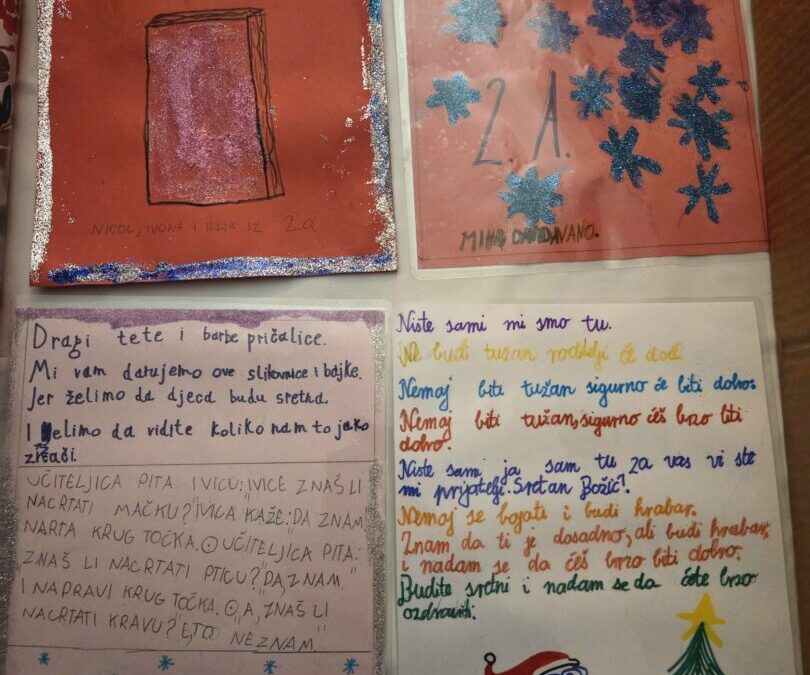 NICOL, IVONA I ILLIA IZ 2.a
2. A.
Dragi tete i barbe pričalice.
Mi vam darujemo ove slikovnice i bajke.
Jer želimo da djeca budu sretna.
I želimo da vidite koliko nam to jako
znači.
UČITELJICA PITA IVICU: "IVICE ZNAŠ LI
NACRTATI MAČKU?" IVICA KAŽE: "DA ZNAM"
NARTA KRUG TOČKA. ⊙ UČITELJICA PITA:
ZNAŠ LI NACRTATI PTICU? "DA, ZNAM."
I NAPRAVI KRUG TOČKA. ⊙ "A, ZNAŠ LI
NACRTATI KRAVU?" "E, TO NE ZNAM."
Niste sami mi smo tu.
Ne budi tužan roditelji će doći.
Nemoj biti tužan sigurno će biti dobro.
Nemoj biti tužan, sigurno ćeš brzo biti
dobro.
Niste sami ja sam tu za vas vi ste
mi prijatelji. Sretan Božić!
Nemoj se bojati i budi hrabar.
Znam da ti je dosadno, ali budi hrabar,
i nadam se da ćeš brzo biti dobro.
Budite sretni i nadam se da ćete brzo
ozdraviti.